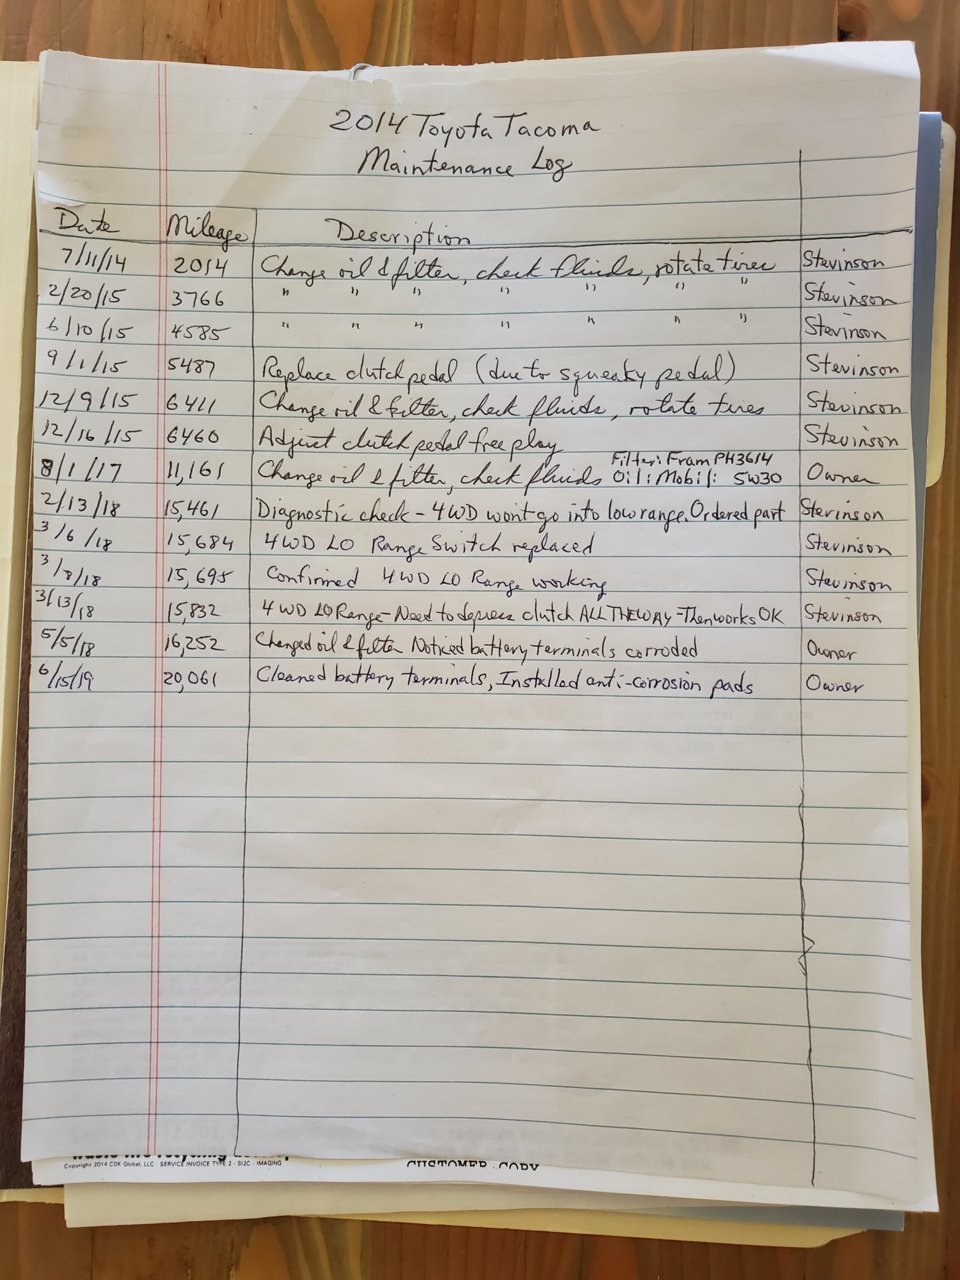 2014 Toyota Tacoma
Maintenance Log
Date Mileage Description
7/11/14 2014 Change oil & filter, check fluids, rotate tires Stevinson
2/20/15 3766 " " " " " " " Stevinson
6/10/15 4585 " " " " " " " Stevinson
9/1/15 5487 Replace clutch pedal (due to squeaky pedal) Stevinson
12/9/15 6411 Change oil & filter, check fluids, rotate tires Stevinson
12/16/15 6460 Adjust clutch pedal free play Stevinson
8/1/17 11,161 Change oil & filter, check fluids Filter: Fram PH3614 Oil: Mobil: 5W30 Owner
2/13/18 15,461 Diagnostic check - 4WD wont go into low range. Ordered part Stevinson
3/6/18 15,684 4WD LO Range Switch replaced Stevinson
3/8/18 15,695 Confirmed 4WD LO Range working Stevinson
3/13/18 15,832 4WD LO Range - Need to depress clutch ALL THE WAY - Then works OK Stevinson
5/5/18 16,252 Changed oil & filter Noticed battery terminals corroded Owner
6/15/19 20,061 Cleaned battery terminals, Installed anti-corrosion pads Owner
Copyright 2014 CDK Global, LLC SERVICE INVOICE TYPE 2 - SI2C - IMAGING
CUSTOMER COPY